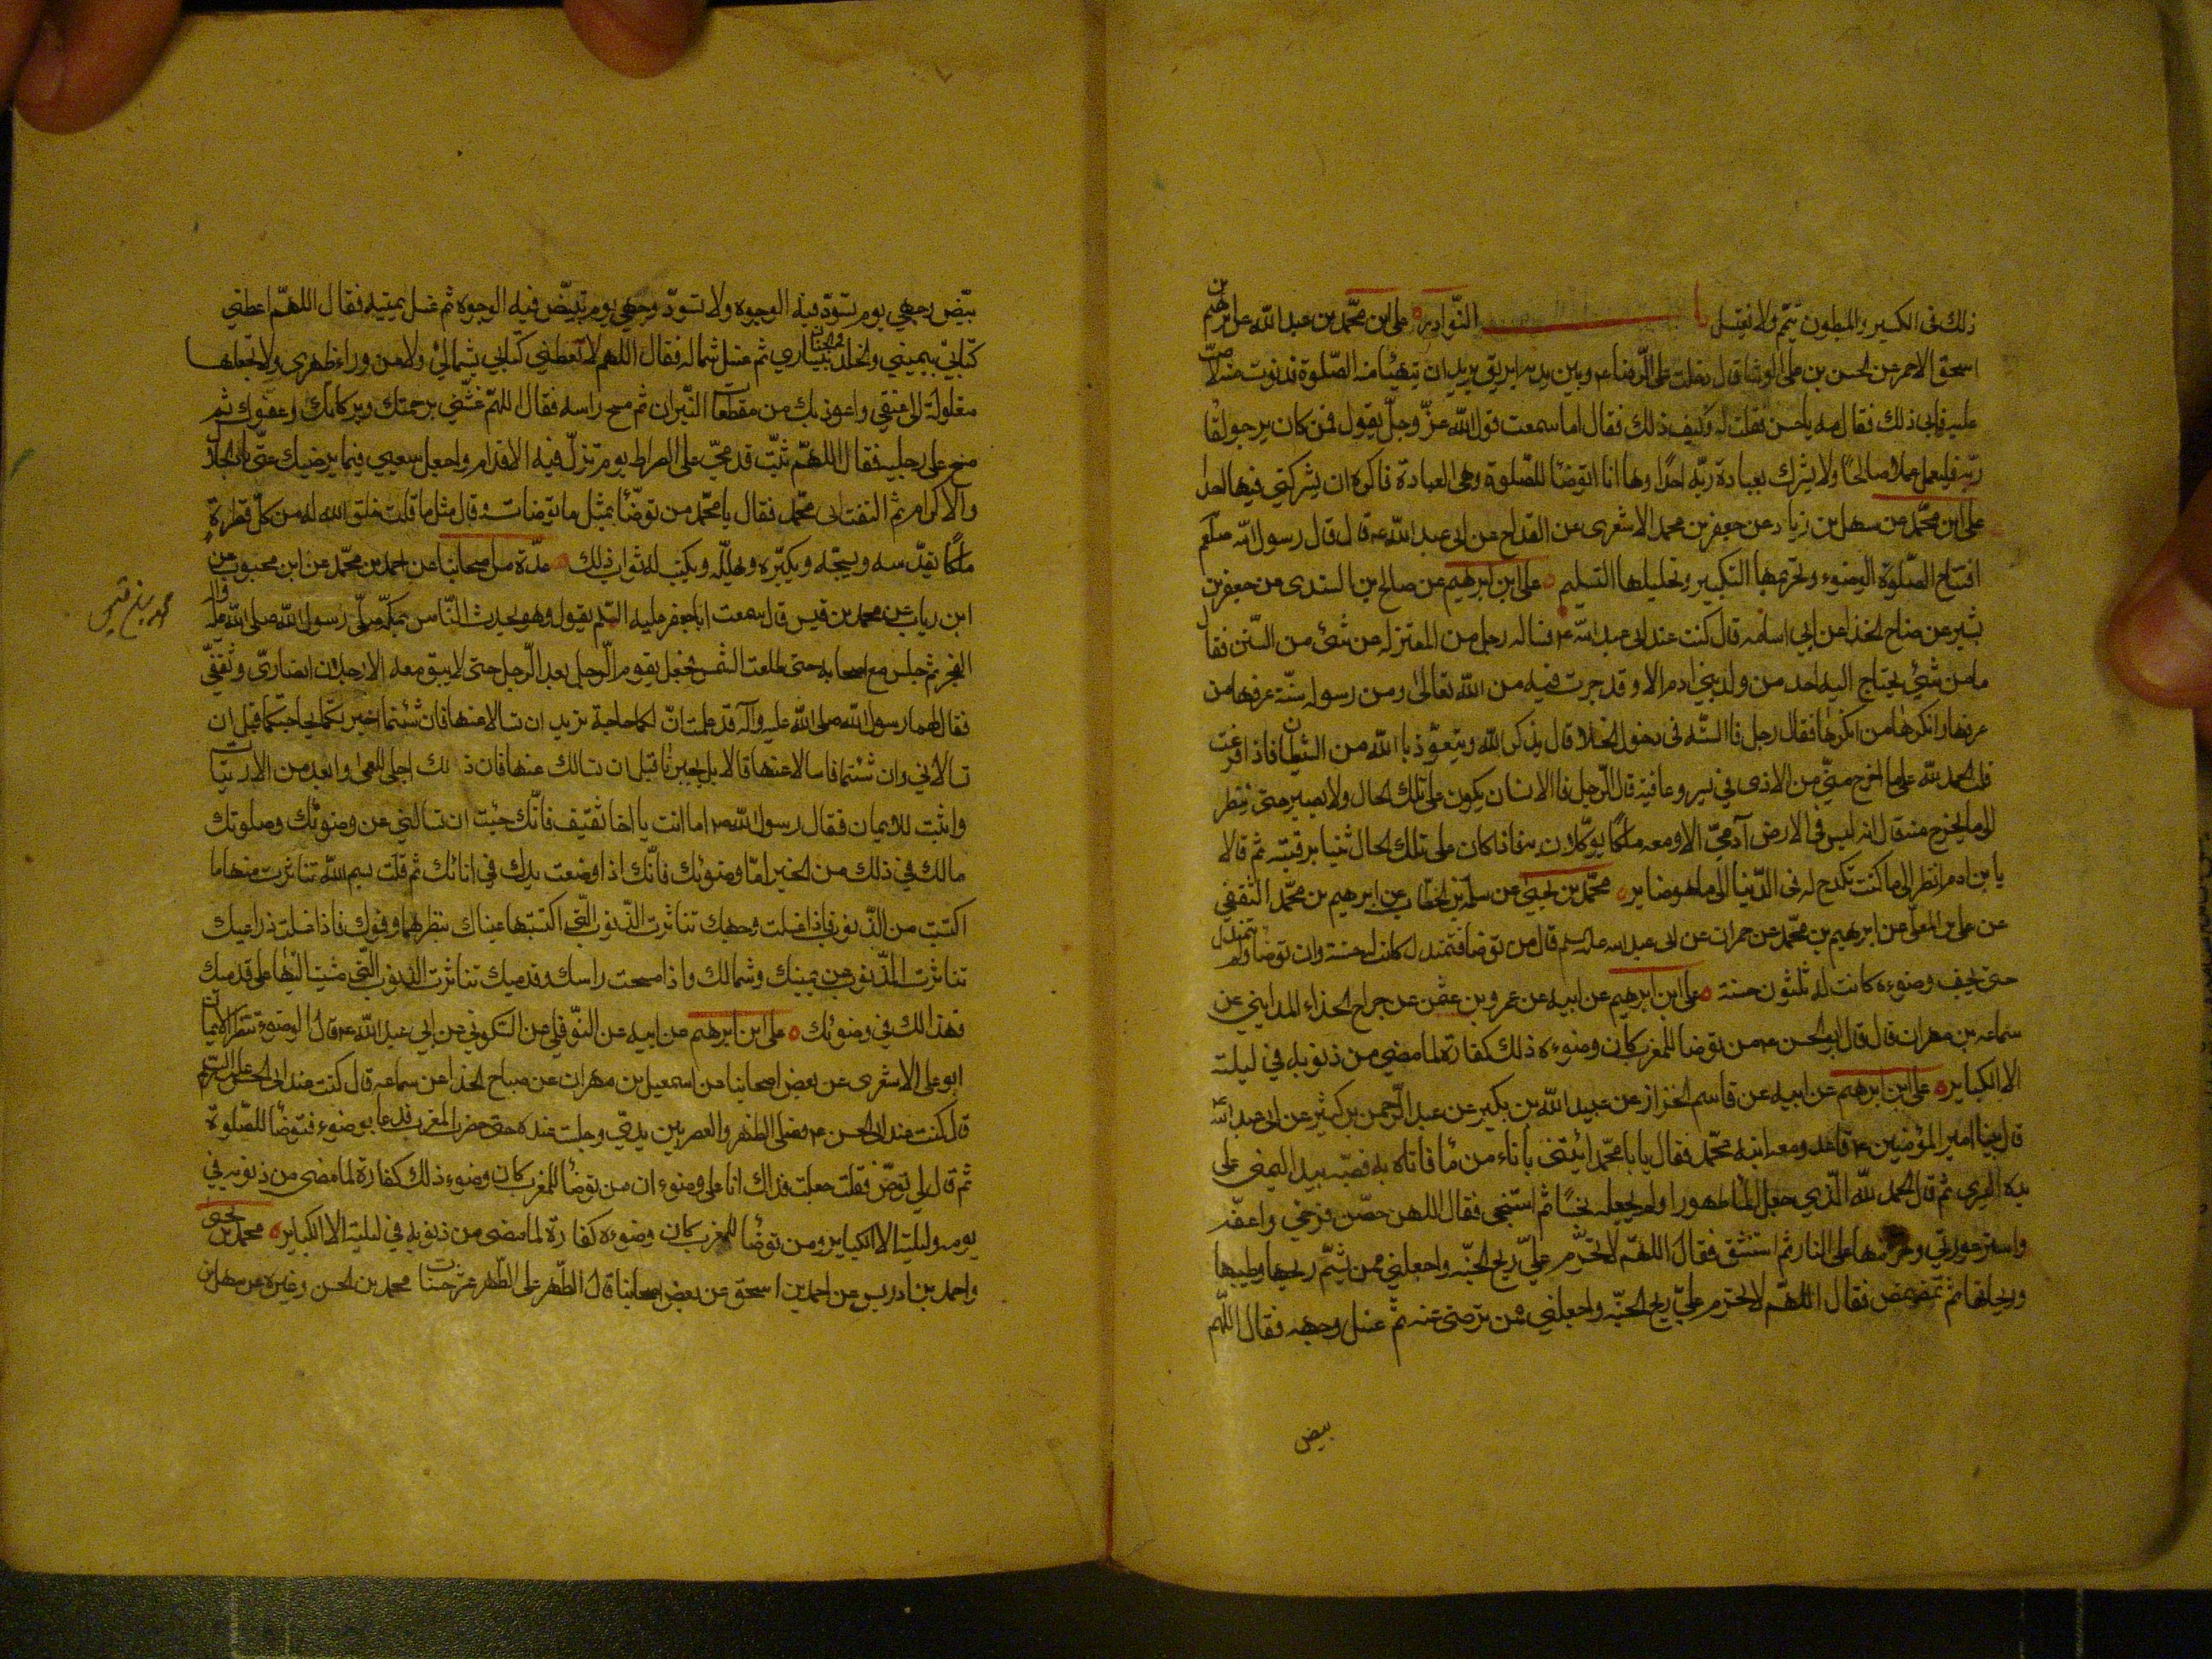 ذلك فى الكسير والمبطون يتيمّم ولا يغتسل باب النّوادر علي ابن محمّد بن عبد الله عن ابرهيم بن
اسحق الاحمر عن الحسن بن علي الوشا قال دخلت على الرضا ع وبين يديه ابريق يريد ان يتهيّأ منه الصّلوة فدنوت منه لاصبّ
عليه فابى ذلك فقال مه يا حسن فقلت له وكيف ذلك فقال اما سمعت قول الله عزّ وجلّ يقول فمن كان يرجو لقا
ربّه فليعمل عملا صالحًا ولا يشرك بعبادة ربّه احدًا وها انا اتوضّأ للصّلوة وهى العبادة فاكره ان يشركني فيها احد
علي ابن محمّد عن سهل بن زياد عن جعفر بن محمد الاشعرى عن القداح عن ابى عبد الله ع قال قال رسول الله صلعم
افتتاح الصّلوة الوضوء وتحريمها التكبير وتحليلها التسليم علي ابن ابرهيم عن صالح بن السندى عن جعفر بن
بشير عن صباح الحذا عن ابي اسامه قال كنت عند ابى عبد الله ع فساله رجل من المعتزله عن شئ من السّنن فقال
ما من شئ يحتاج اليه احد من ولد بني ادم الا وقد جرت فيه من الله تعالى ومن رسوله سنّة عرفها من
عرفها وانكرها من انكرها فقال رجل فا السّنه فى دخول الخلا قال يذكر الله ويتعوّذ با الله من الشيطان فاذا فرغت
قلت الحمد لله على ما اخرج منّي من الاذى في يسر وعافية قال الرّجل فا الانسان يكون على تلك الحال ولا يصبر حتى ينظر
الى ما يخرج منه قال انه ليس فى الارض آدميّ الا ومعه ملكان يوكلان به فاذا كان على تلك الحال ثنيا برقبته ثم قالا
يا بن ادم انظر الى ما كنت تكدح له فى الدّنيا الى ما هو صاير محمّد بن يحيي عن سلمه بن الخطاب عن ابرهيم بن محمّد الثقفي
عن على بن المعلّى عن ابرهيم بن محمّد عن حمران عن ابى عبد الله عليه السلم قال من توضا فتمندل كانت له حسنة وان توضا ولم يتمندل
حتى يجف وضوءه كانت له ثلثون حسنة علي ابن ابرهيم عن ابيه عن عمرو بن عثمن عن جراح الحذاء المدايني عن
سماعه بن مهران قال قال ابو الحسن ع من توضا للمغرب كان وضوءه ذلك كفارة لما مضى من ذنوبه في ليلته
الا الكباير علي ابن ابرهيم عن ابيه عن قاسم الخزاز عن عبيد الله بن بكير عن عبد الرّحمن بن كثير عن ابى عبد الله ع
قال بينا امير المؤمنين ع قاعد ومعه ابنه محمّد فقال يا با محمّد ائتني باناء من مأ فاتاه به فصبّه بيد اليمنى على
يده اليسرى ثم قال الحمد لله الّذي جعل المأ طهورا ولم يجعله نجسًا ثم استنجى فقال اللهم حصّن فرجي واعفّه
واستر عورتي وحرمها على النار ثم استنشق فقال اللهمّ لا تحرّم عليّ ريح الجنّه واجعلني ممن يشمّ ريحها وطيبها
وريحانها ثم تمضمض فقال اللهمّ لا تحرم عليّ ريح الجنّه واجعلني ممن ترضى عنه ثمّ غسل وجهه فقال اللهم
بيض
بيّض وجهي يوم تسوّد فيه الوجوه ولا تسوّد وجهي يوم تبيّض فيه الوجوه ثم غسل يمينه فقال اللهمّ اعطني
كتابي بيميني والخلد بيساري ثم غسل شماله فقال اللهم لا تعطني كتابي بشمالي ولا من وراء ظهرى ولا تجعلها
مغلولة الى عنقي واعوذ بك من مقطعات النّيران ثم مسح راسه فقال اللهمّ غشّني برحمتك وبركاتك وعفوك ثم
مسح على رجليه فقال اللهمّ ثبّت قدميّ على الصراط يوم تزلّ فيه الاقدام واجعل سعيي فيما يرضيك عنّي يا ذا الجلال
والاكرام ثم التفت الى محمّد فقال يا محمّد من توضّأ بمثل ما توضات وقال مثل ما قلت خلق الله له من كلّ قطرة
ملكًا يقدّسه ويسبّحه ويكبّره ويهلّله ويكتب له ثواب ذلك عدّة من اصحابنا عن احمد بن محمّد عن ابن محبوب عن
ابن رياب عن محمد بن قيس قال سمعت ابا جعفر عليه السّلم يقول وهو يحدث النّاس بمكّه صلّى رسول الله صلى الله عليه واله
الفجر ثم جلس مع اصحابه حتى طلعت الشمس فجعل يقوم الرّجل بعد الرّجل حتى لا يبق معه الا رجلان انصاريّ وثقفيّ
فقال لهما رسول الله صلى الله عليه وآله قد علمت انّ لكما حاجة تريدان تسالا عنها فان شئتما اخبرتكما بحاجتكما قبل ان
تسالاني وان شئتما فاسالا عنها قالا بل تخبرنا قبل ان نسالك عنها فان ذلك اجلى للعمى وابعد من الارتياب
واثبت للايمان فقال رسول الله ص اما انت يا اخا ثقيف فانّك جئت ان تسالني عن وضوئك وصلوتك
مالك في ذلك من الخير امّا وضوئك فانّك اذا وضعت يدك في انائك ثم قلت بسم الله تناثرت منها ما
اكتسبت من الذّنوب فاذا غسلت وجهك تناثرت الذّنوب الّتي اكتسبتها عيناك بنظرهما وفوك فاذا غسلت ذراعيك
تناثرت الذّنوب عن يمينك وشمالك واذا مسحت راسك وقدميك تناثرت الذّنوب الّتي مشيت اليها على قدميك
فهذا لك في وضوئك علي ابن ابرهيم عن ابيه عن النّوفلي عن السّكوني عن ابي عبد الله ع قال الوضوء شطر الايمان
ابو علي الاشعرى عن بعض اصحابنا عن اسمعيل بن مهران عن صباح الحذا عن سماعه قال كنت عند ابى الحسن عليه السلم
قال كنت عند ابى الحسن ع فصلى الظهر والعصر بين يديّ وجلست عنده حتى حضرت المغرب فدعا بوضوء فتوضّأ للصّلوة
ثم قال لي توضّ فقلت جعلت فداك انا على وضوء ان من توضّأ للمغرب كان وضوء ذلك كفارة لما مضى من ذنوبه في
يومه وليلته الا الكباير ومن توضّأ للمغرب كان وضوءه كفارة لما مضى من ذنوبه في ليلته الا الكباير محمد بن يحيى
واحمد بن ادريس عن احمد بن اسحق عن بعض اصحابنا قال الطّهر على الطّهر عشر حسنات محمد بن الحسن وغيره عن سهل بن